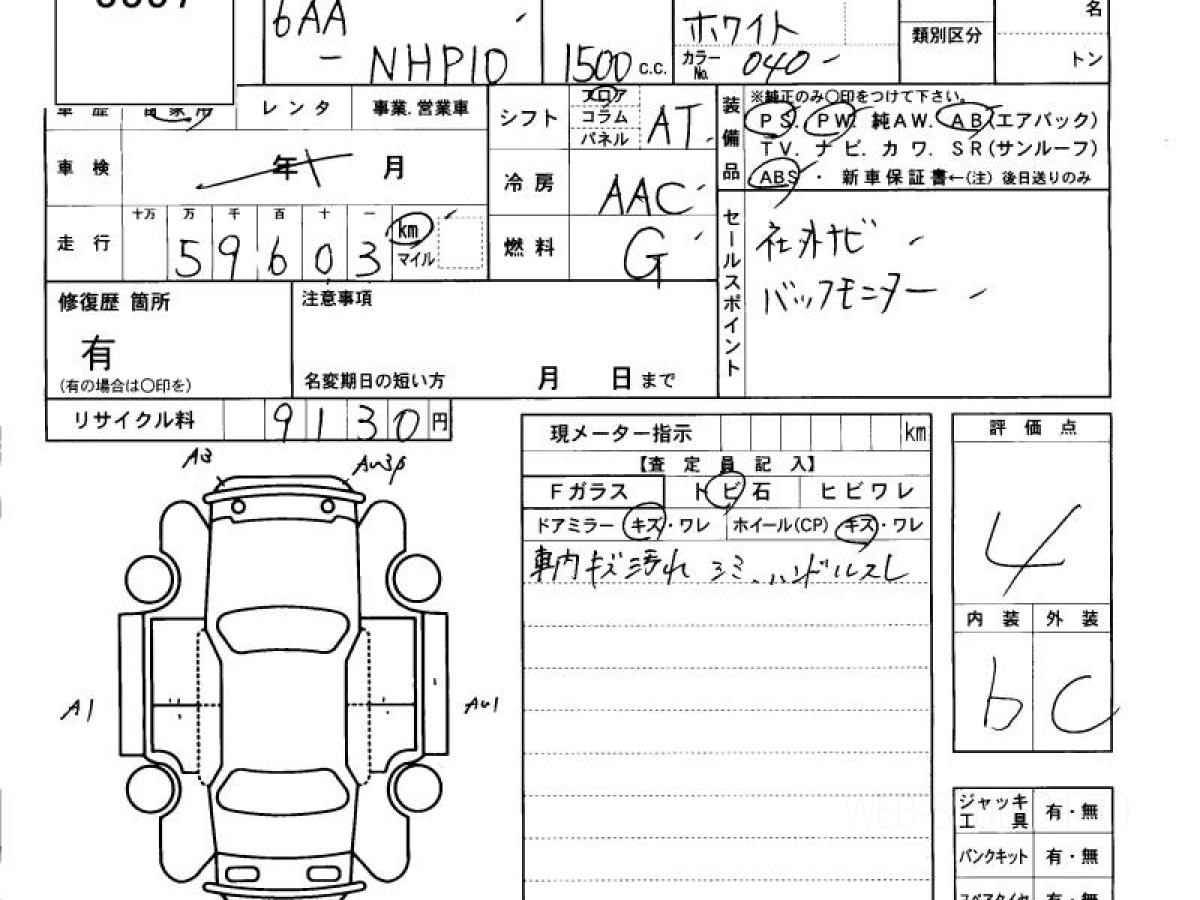 6AA
- NHP10
1500 c.c.
ホワイト
カラーNo. 040
類別区分
名
トン
レンタ 事業.営業車
シフト
フロア
コラム
パネル
AT
装備品
※純正のみ〇印をつけて下さい。
PS. PW. 純AW. AB(エアバック)
TV. ナビ. カワ. SR(サンルーフ)
ABS ・ 新車保証書←(注) 後日送りのみ
車検 年 月
冷房 AAC
走行
十万 万 千 百 十 一
5 9 6 0 3
km
マイル
燃料 G
セールスポイント
社外ナビ
バックモニター
修復歴 箇所
有
(有の場合は〇印を)
注意事項
名変期日の短い方 月 日まで
リサイクル料 9 1 3 0 円
現メーター指示 km
【査定員記入】
Fガラス トビ石 ヒビワレ
ドアミラー キズ・ワレ ホイール(CP) キズ・ワレ
車内キズ汚れ シミ、ハンドルスレ
評価点
4
内装 外装
b C
A3
A1
ジャッキ工具 有・無
パンクキット 有・無